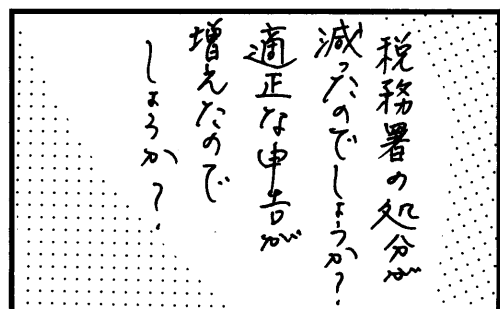 税務署の処分が
減ったのでしょうか？
適正な申告が
増えたので
しょうか？